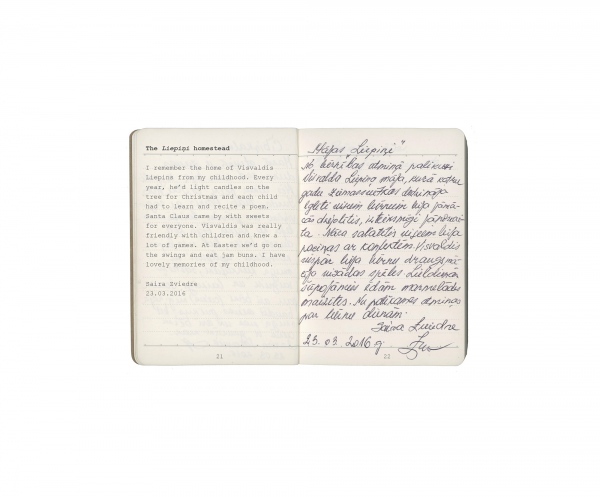 The Liepiņi homestead
I remember the home of Visvaldis
Liepins from my childhood. Every
year, he'd light candles on the
tree for Christmas and each child
had to learn and recite a poem.
Santa Claus came by with sweets
for everyone. Visvaldis was really
friendly with children and knew a
lot of games. At Easter we'd go on
the swings and eat jam buns. I have
lovely memories of my childhood.
Saira Zviedre
23.03.2016
21
Mājas "Liepiņi"
No bērnības atmiņā palikusi
Visvalda Liepiņa māja, kurā katru
gadu Ziemassvētkos dedzināja
eglīti visiem bērniem bija jāmā-
cās dzejolītis,
ta. salatētis visiem bija
paciņas ar konfektēm Visvaldis
bija bērnu
zināja visādas spēles Lieldienās
šūpojāmies ēdām marmelādes
maizītes. palikušas atmiņas
par bērnu dienām.
Saira Zviedre
23. 03. 2016 g.
22